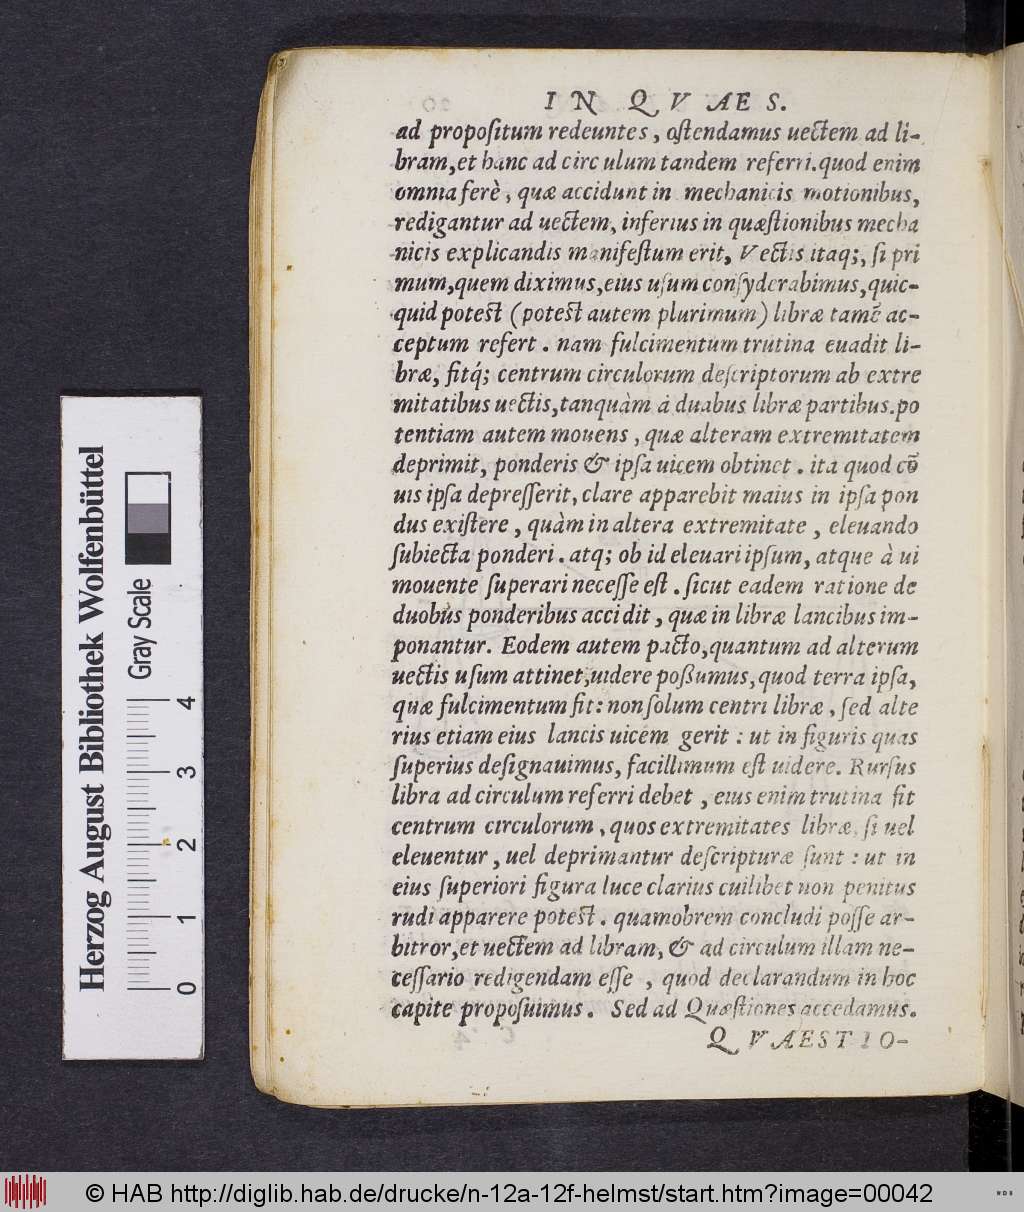 IN QVAES.
ad propoſitum redeuntes, oſtendamus uectem ad li-
bram, et hanc ad circulum tandem referri. quod enim
omnia ferè, quæ accidunt in mechanicis motionibus,
redigantur ad uectem, inferius in quæſtionibus mecha
nicis explicandis manifeſtum erit, Vectis itaq;, ſi pri
mum, quem diximus, eius uſum conſyderabimus, quic-
quid poteſt (poteſt autem plurimum) libræ tamẽ ac-
ceptum refert. nam fulcimentum trutina euadit li-
bræ, fitq́; centrum circulorum deſcriptorum ab extre
mitatibus uectis, tanquàm à duabus libræ partibus. po
tentiam autem mouens, quæ alteram extremitatem
deprimit, ponderis & ipſa uicem obtinet. ita quod cũ
uis ipſa depreſſerit, clare apparebit maius in ipſa pon
dus exiſtere, quàm in altera extremitate, eleuando
ſubiecta ponderi. atq; ob id eleuari ipſum, atque à ui
mouente ſuperari neceſſe eſt. ſicut eadem ratione de
duobus ponderibus accidit, quæ in libræ lancibus im-
ponantur. Eodem autem pacto, quantum ad alterum
uectis uſum attinet, uidere poßumus, quod terra ipſa,
quæ fulcimentum fit: non ſolum centri libræ, ſed alte
rius etiam eius lancis uicem gerit: ut in figuris quas
ſuperius deſignauimus, facillimum eſt uidere. Rurſus
libra ad circulum referri debet, eius enim trutina fit
centrum circulorum, quos extremitates libræ, ſi uel
eleuentur, uel deprimantur deſcripturæ ſunt: ut in
eius ſuperiori figura luce clarius cuilibet non penitus
rudi apparere poteſt. quamobrem concludi poſſe ar-
bitror, et uectem ad libram, & ad circulum illam ne-
ceſſario redigendam eſſe, quod declarandum in hoc
capite propoſuimus. Sed ad Quæſtiones accedamus.
QVAESTIO-
Herzog August Bibliothek Wolfenbüttel
Gray Scale
0 1 2 3 4
© HAB http://diglib.hab.de/drucke/n-12a-12f-helmst/start.htm?image=00042